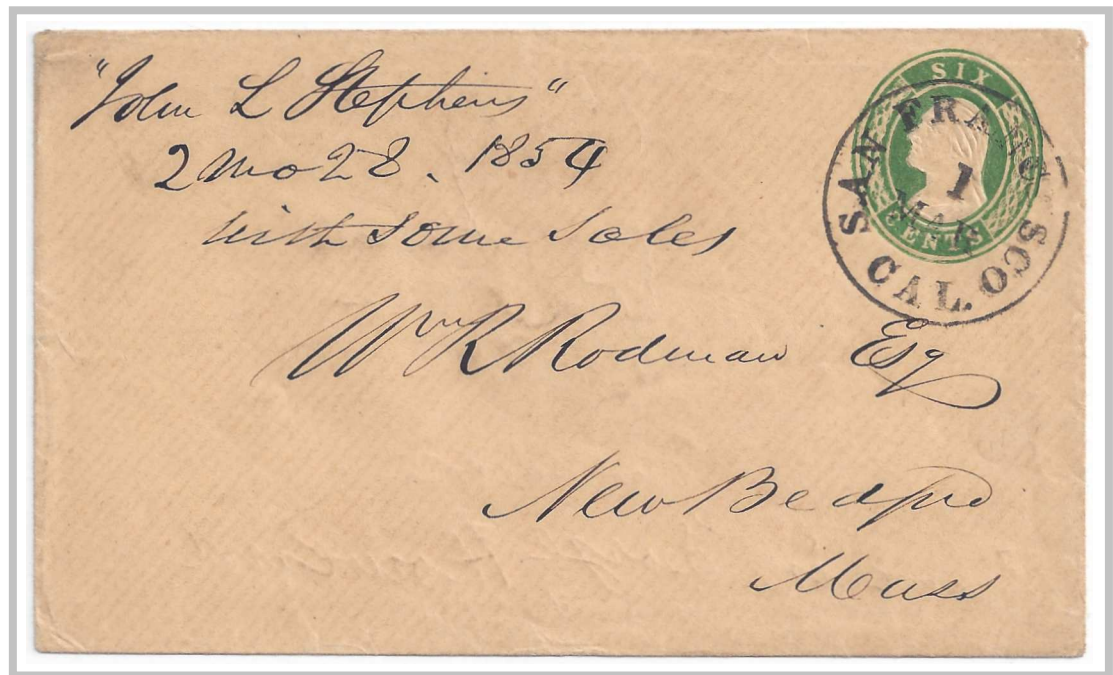 "John L Stephens"
2 mo 28. 1854
with some Sales
Wm R Rodman Esq
New Bedford
Mass
SIX CENTS
SAN FRANCISCO CAL.
1
MAR